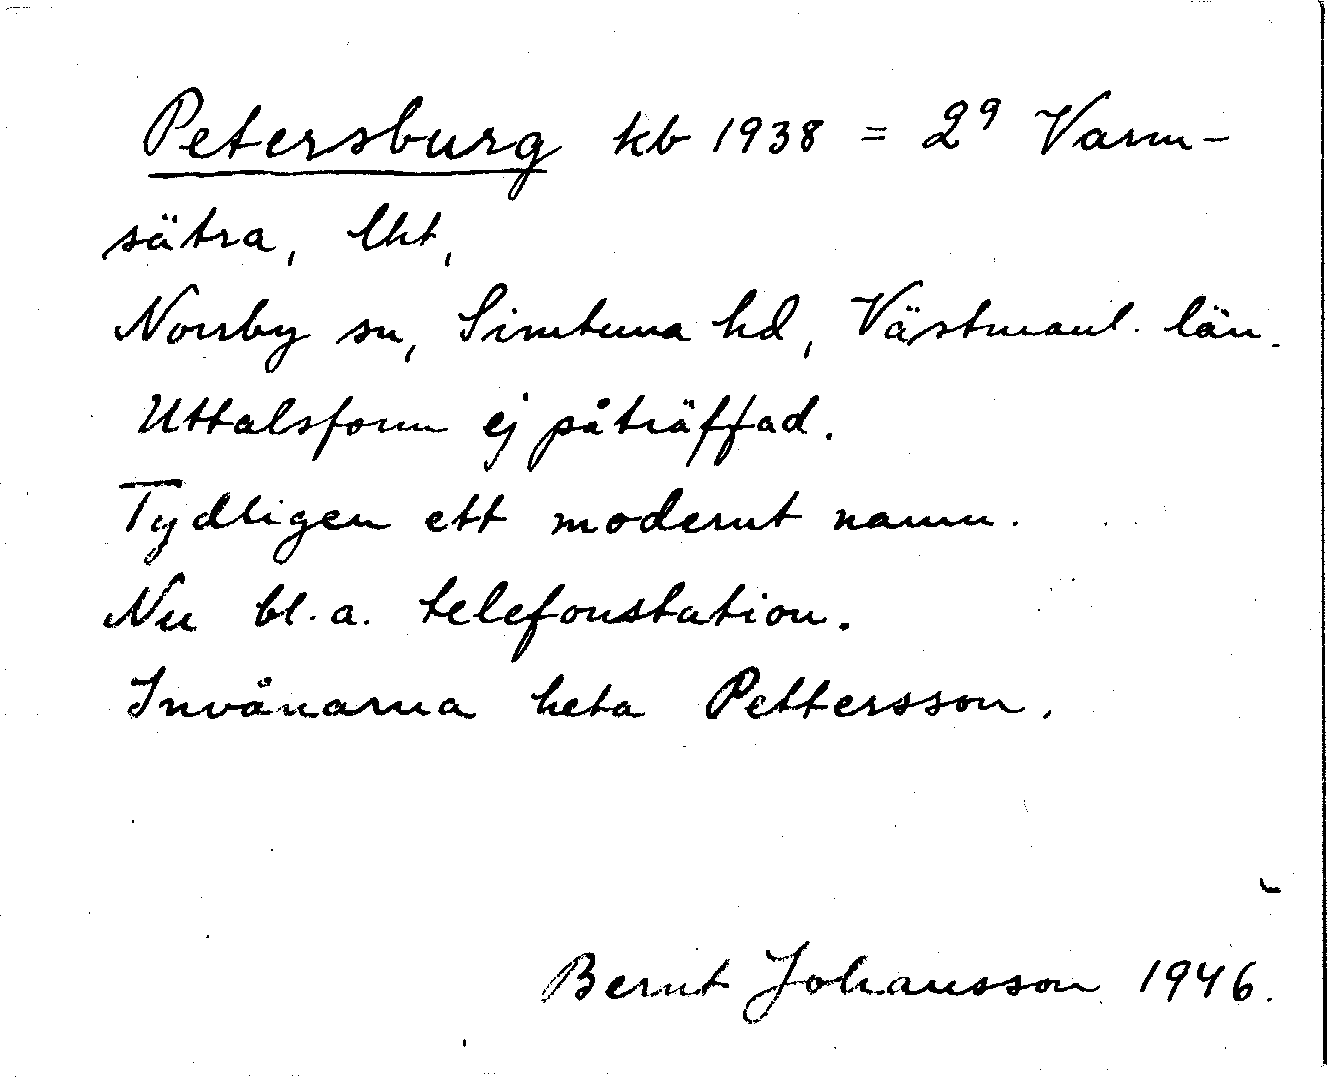 Petersburg kb 1938 = 2⁹ Varm-
sätra, lht,
Norrby sn, Simtuna hd, Västmanl. län.
Uttalsform ej påträffad.
Tydligen ett modernt namn.
Nu bl.a. telefonstation.
Invånarna heta Pettersson.
Bernt Johansson 1946.